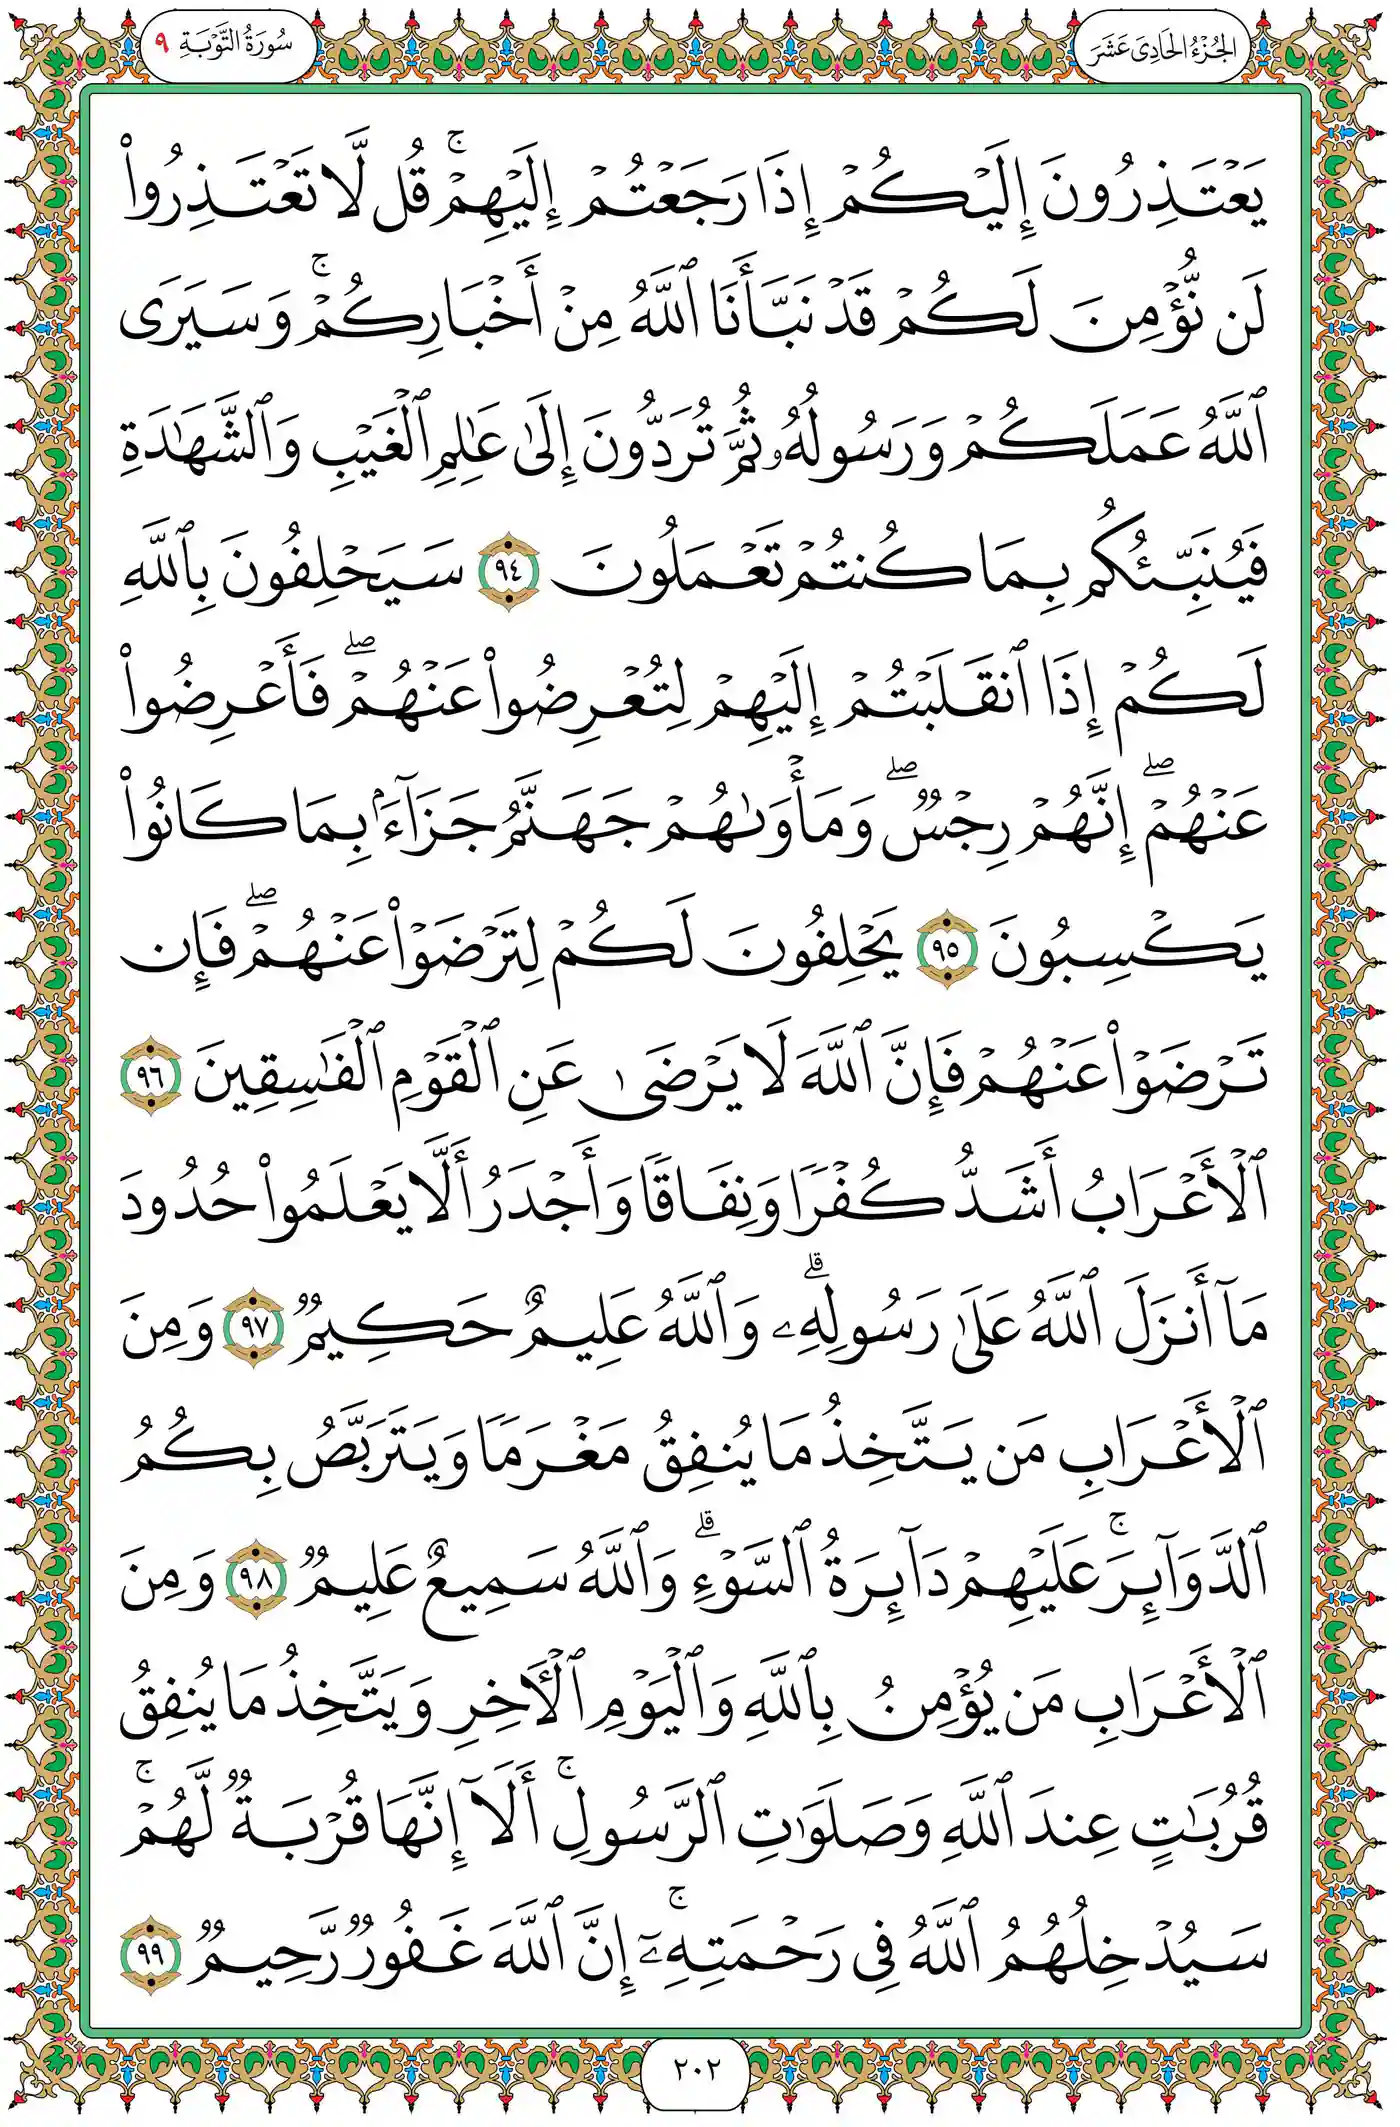 الجُزْءُ الحَادِيَ عَشَرَ
سُورَةُ التَّوْبَةِ ٩
يَعۡتَذِرُونَ إِلَيۡكُمۡ إِذَا رَجَعۡتُمۡ إِلَيۡهِمۡۚ قُل لَّا تَعۡتَذِرُواْ
لَن نُّؤۡمِنَ لَكُمۡ قَدۡ نَبَّأَنَا ٱللَّهُ مِنۡ أَخۡبَارِكُمۡۚ وَسَيَرَى
ٱللَّهُ عَمَلَكُمۡ وَرَسُولُهُۥ ثُمَّ تُرَدُّونَ إِلَىٰ عَٰلِمِ ٱلۡغَيۡبِ وَٱلشَّهَٰدَةِ
فَيُنَبِّئُكُم بِمَا كُنتُمۡ تَعۡمَلُونَ ٩٤ سَيَحۡلِفُونَ بِٱللَّهِ
لَكُمۡ إِذَا ٱنقَلَبۡتُمۡ إِلَيۡهِمۡ لِتُعۡرِضُواْ عَنۡهُمۡۖ فَأَعۡرِضُواْ
عَنۡهُمۡۖ إِنَّهُمۡ رِجۡسٞۖ وَمَأۡوَىٰهُمۡ جَهَنَّمُ جَزَآءَۢ بِمَا كَانُواْ
يَكۡسِبُونَ ٩٥ يَحۡلِفُونَ لَكُمۡ لِتَرۡضَوۡاْ عَنۡهُمۡۖ فَإِن
تَرۡضَوۡاْ عَنۡهُمۡ فَإِنَّ ٱللَّهَ لَا يَرۡضَىٰ عَنِ ٱلۡقَوۡمِ ٱلۡفَٰسِقِينَ ٩٦
ٱلۡأَعۡرَابُ أَشَدُّ كُفۡرٗا وَنِفَاقٗا وَأَجۡدَرُ أَلَّا يَعۡلَمُواْ حُدُودَ
مَآ أَنزَلَ ٱللَّهُ عَلَىٰ رَسُولِهِۦۗ وَٱللَّهُ عَلِيمٌ حَكِيمٞ ٩٧ وَمِنَ
ٱلۡأَعۡرَابِ مَن يَتَّخِذُ مَا يُنفِقُ مَغۡرَمٗا وَيَتَرَبَّصُ بِكُمُ
ٱلدَّوَآئِرَۚ عَلَيۡهِمۡ دَآئِرَةُ ٱلسَّوۡءِۗ وَٱللَّهُ سَمِيعٌ عَلِيمٞ ٩٨ وَمِنَ
ٱلۡأَعۡرَابِ مَن يُؤۡمِنُ بِٱللَّهِ وَٱلۡيَوۡمِ ٱلۡأٓخِرِ وَيَتَّخِذُ مَا يُنفِقُ
قُرُبَٰتٍ عِندَ ٱللَّهِ وَصَلَوَٰتِ ٱلرَّسُولِۚ أَلَآ إِنَّهَا قُرۡبَةٞ لَّهُمۡۚ
سَيُدۡخِلُهُمُ ٱللَّهُ فِي رَحۡمَتِهِۦٓۚ إِنَّ ٱللَّهَ غَفُورٞ رَّحِيمٞ ٩٩
٢٠٢